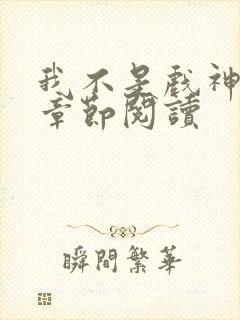 我不是戲神
章節閱讀
瞬間繁華